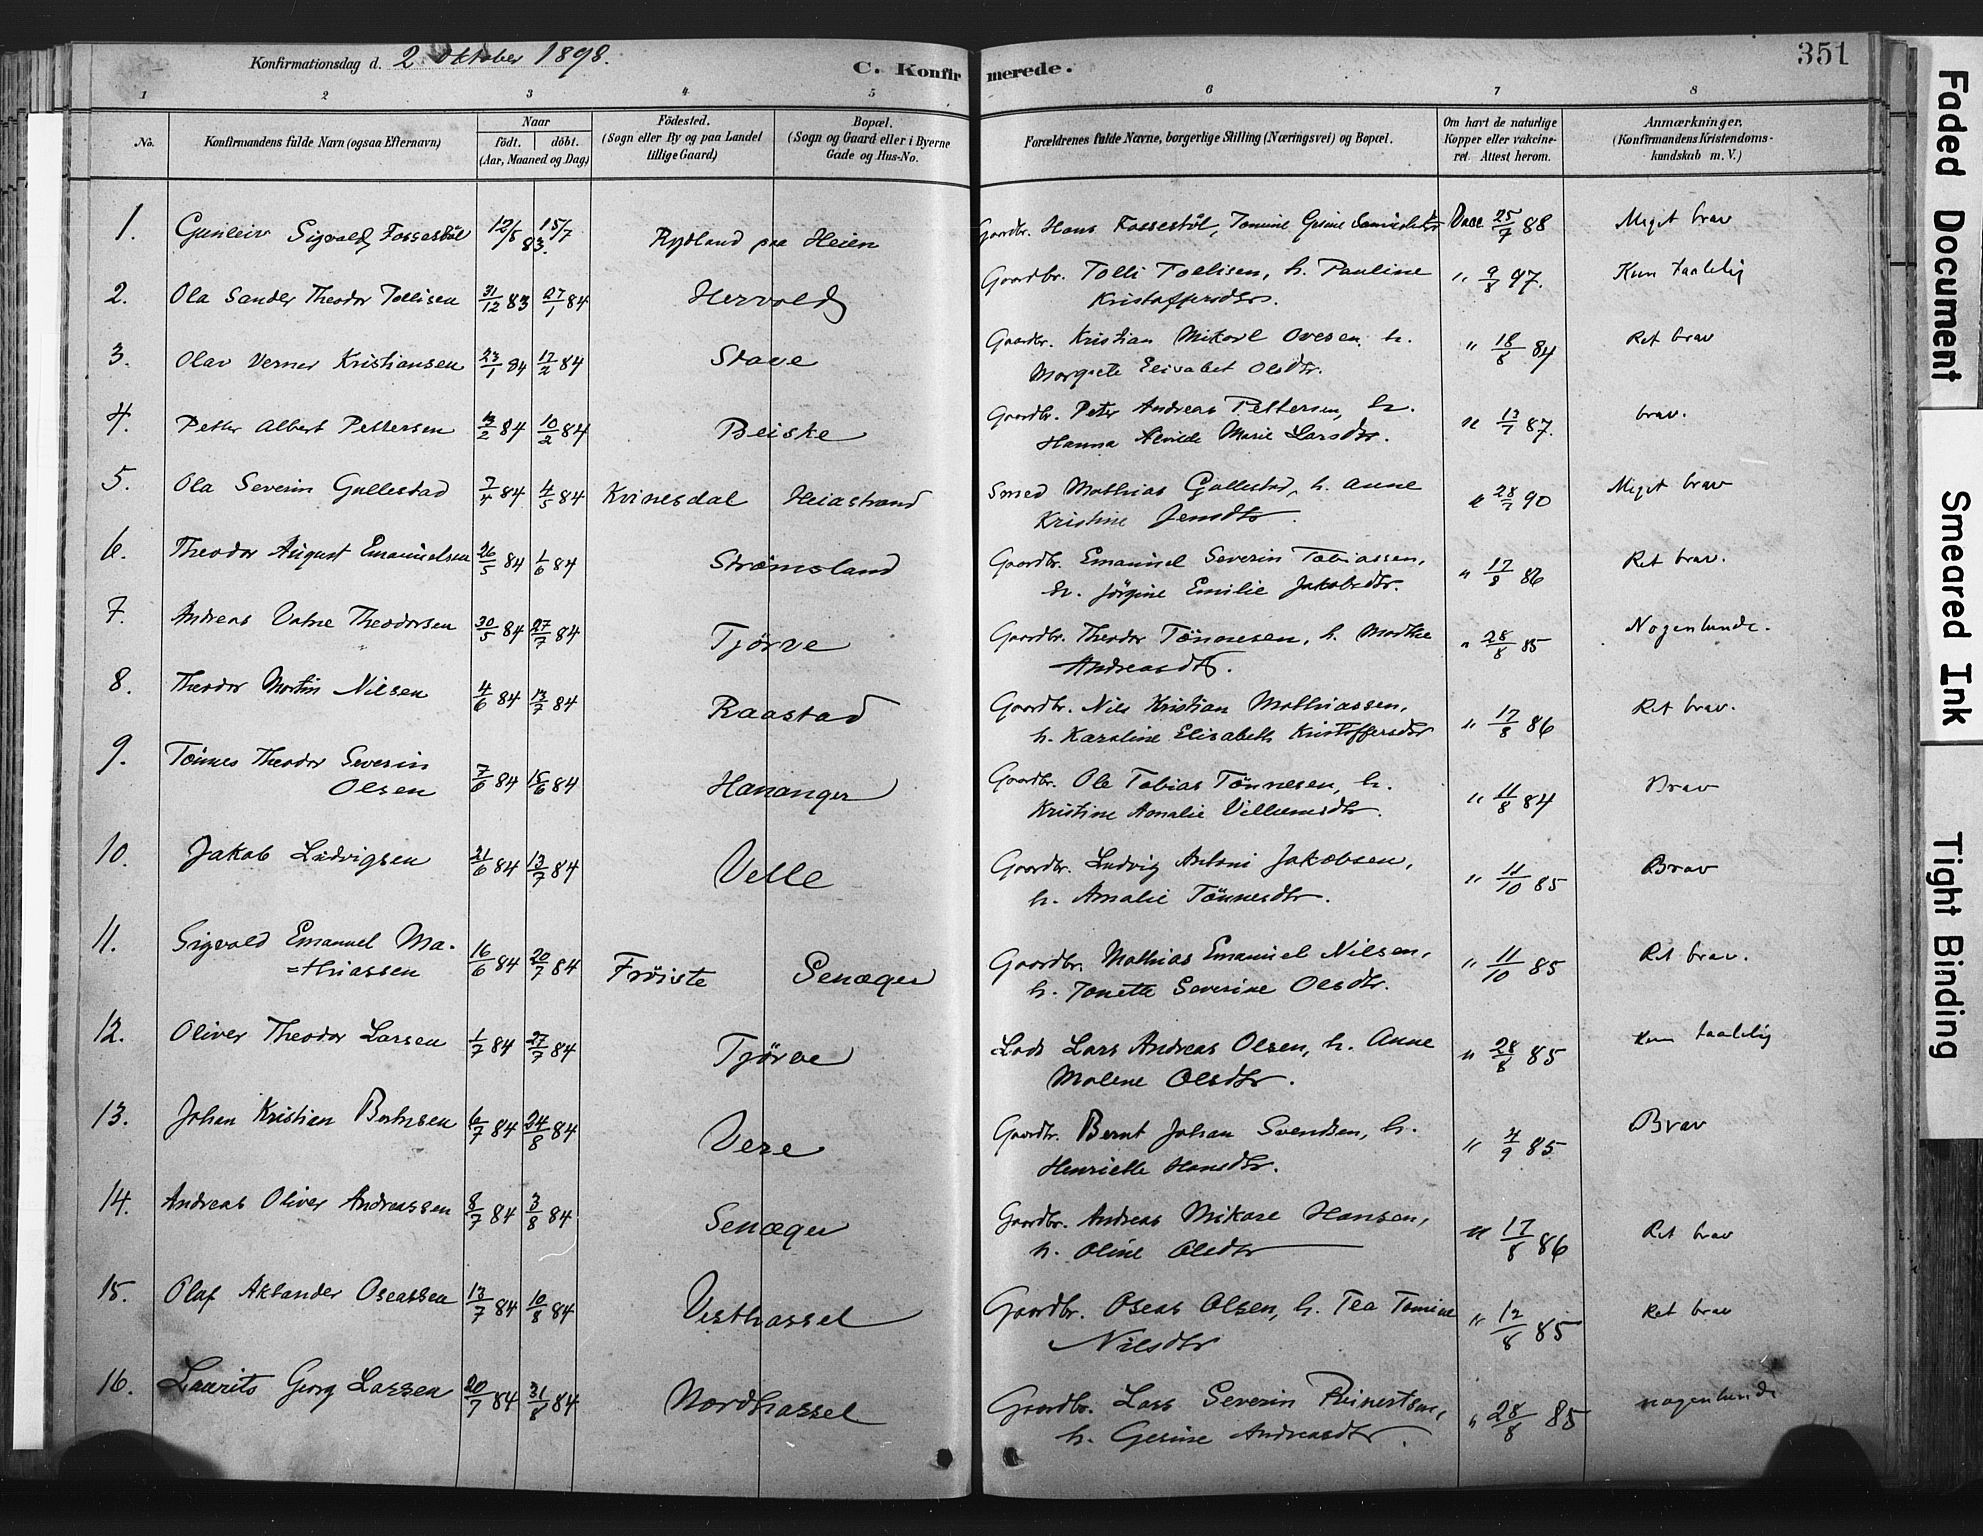 Konfirmationsdag d. 2 Oktober 1898.
C. Konfirmerede.
351
1 2 3 4 5 6 7 8
No.
Konfirmandens fulde Navn (ogsaa Efternavn)
Naar
født. døbt.
(Aar, Maaned og Dag)
Fødested.
(Sogn eller By og paa Landet
tillige Gaard)
Bopæl.
(Sogn og Gaard eller i Byerne
Gade og Hus-No.
Forældrenes fulde Navne, borgerlige Stilling (Næringsvei) og Bopæl.
Om havt de naturlige
Kopper eller vakcine-
ret. Attest herom.
Anmærkninger.
(Konfirmandens Kristendoms-
kundskab m. V.)
1. Gunleiv Sigvald Fossestøl 12/5 83. 15/7 Rydland paa Heien Gaardbr. Hans Fossestøl, Tomine Gesine Vacc. 25/7 88 Meget brav
2. Ola Sander Theodor Tollisen 31/12 83 27/1 84 Hervold Gaardbr. Tolli Tollisen, h. Pauline
Kristoffersdtr. " 9/8 97. Kun taalelig
3. Olav Verner Kristiansen 23/1 84 17/2 84 Stave Gaardbr. Kristian Mikael Ovesen, h.
Margrete Elisabet Olsdtr. " 18/8 84 Ret brav
4. Petter Albert Pettersen 3/2 84 10/2 84 Beiske Gaardbr. Peter Andreas Pettersen, h.
Hanna Alvilde Marie Larsdtr. " 13/7 87. brav.
5. Ola Severin Gullestad 7/4 84 4/5 84 Kvinesdal Heiastrand Smed Mathias Gullestad, h. Anne
Kristine Jensdtr. " 28/7 90 Meget brav
6. Theodor August Emanuelsen 26/5 84 1/6 84 Strømsland Gaardbr. Emanuel Severin Tobiassen,
h. Jørgine Emilie Jakobsdtr. " 17/8 86 Ret brav.
7. Andreas Vatne Theodorsen 30/5 84 27/7 84 Tjørve Gaardbr. Theodor Tønnesen, h. Marthe
Andreasdtr. " 28/8 85 Nogenlunde.
8. Theodor Martin Nilsen 4/6 84 13/7 84 Raastad Gaardbr. Nils Kristian Mathiassen,
h. Karoline Elisabeth Kristoffersdtr " 17/8 86 Ret brav.
9. Tønnes Theodor Severin
Olsen 7/6 84 15/6 84 Hananger Gaardbr. Ole Tobias Tønnesen, h.
Kristine Amalie Villumsdtr. " 11/8 84 Brav
10. Jakob Ludvigsen 21/6 84 13/7 84 Velle Gaardbr. Ludvig Antoni Jakobsen,
h. Amalie Tønnesdtr. " 11/10 85 Brav
11. Sigvald Emanuel Ma-
=thiassen 16/6 84 20/7 84 Frøiste Senæger Gaardbr. Mathias Emanuel Nilsen,
h. Tonette Severine Olsdtr. " 11/10 85 Ret brav.
12. Oliver Theodor Larsen 1/7 84 27/7 84 Tjørve Lods Lars Andreas Olsen, h. Anne
Malene Olsdtr. " 28/8 85 Kun taalelig
13. Johan Kristian Berntsen 6/7 84 24/8 84 Vere Gaardbr. Bernt Johan Svendsen, h.
Henriette Hansdtr. " 4/9 85 Brav
14. Andreas Oliver Andreassen 8/7 84 3/8 84 Senæger Gaardbr. Andreas Mikael Hansen,
h. Oline Olsdtr " 17/8 86 Ret brav
15. Olaf Aksander Oseassen 13/7 84 10/8 84 Vesthassel Gaardbr. Oseas Olsen, h. Tea Tomine
Nilsdtr " 12/8 85 Ret brav
16. Laurits Georg Larsen 20/7 84 31/8 84 Nordhassel Gaardbr. Lars Severin Reinertsen,
h. Gesine Andreasdtr. " 28/8 85 nogenlunde
Faded Document
Smeared Ink
Tight Binding